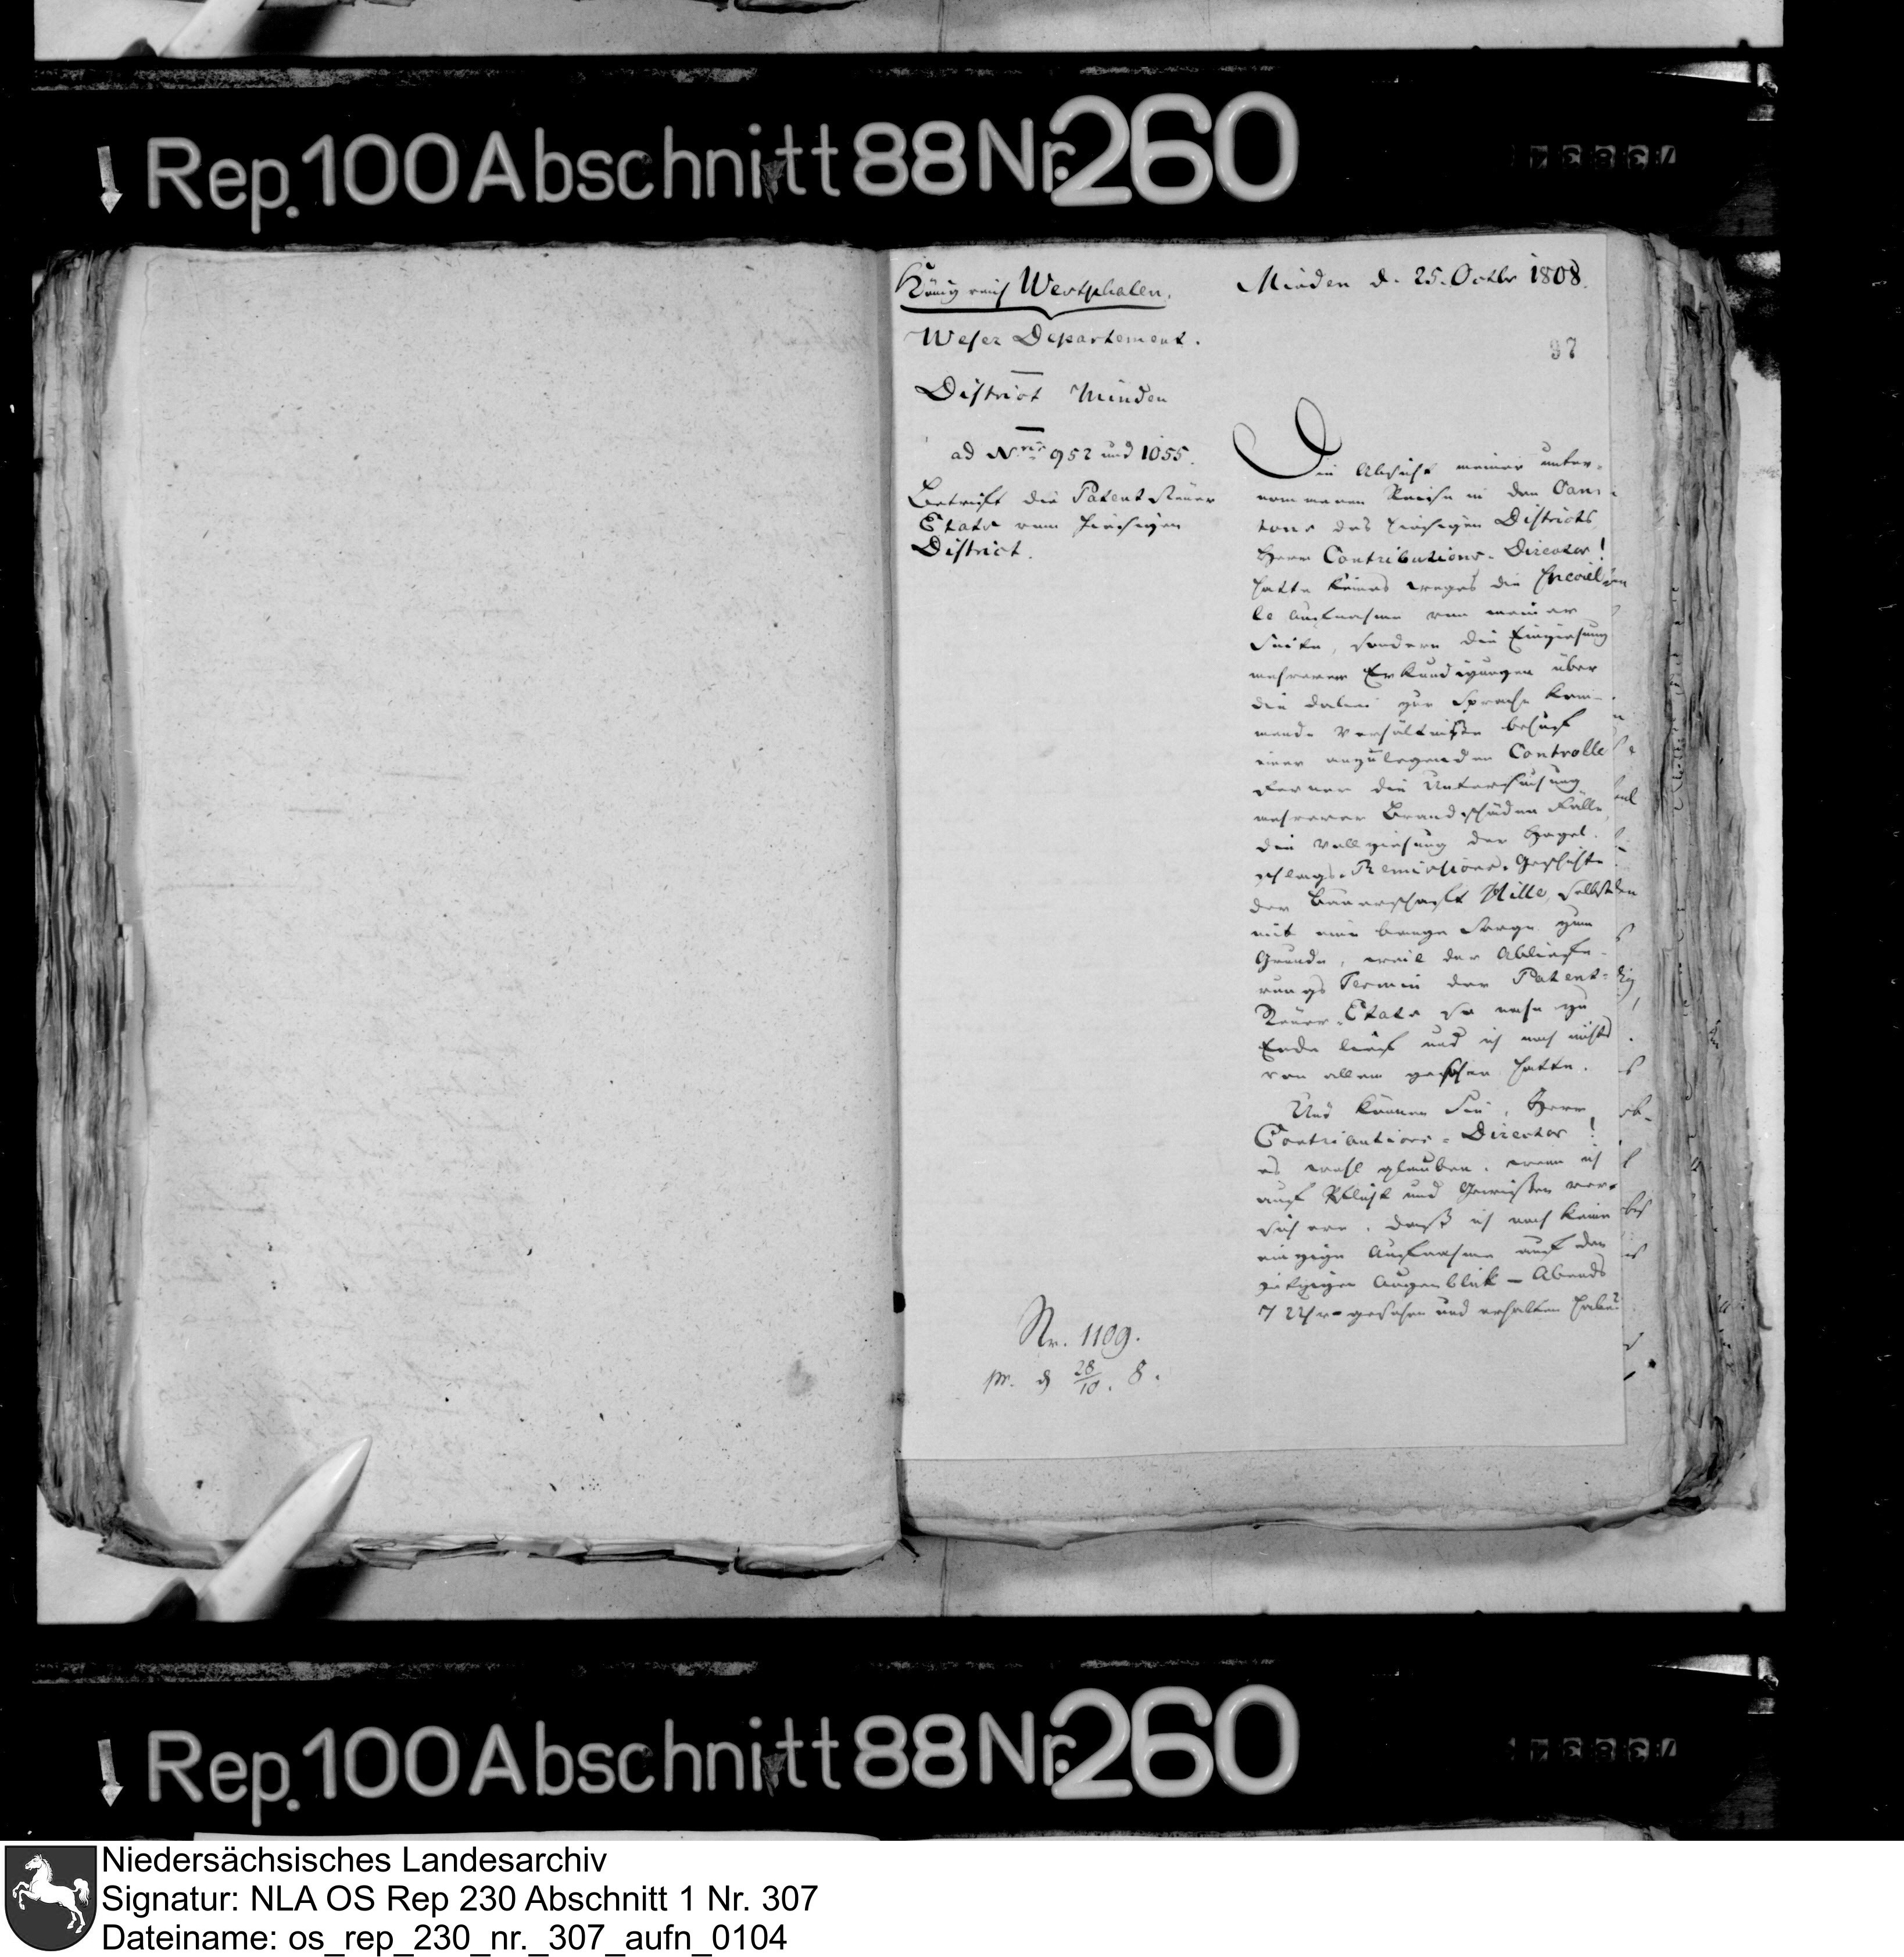 Rep. 100 Abschnitt 88 Nr. 260
Königreich Westphalen.
Minden d. 25. Octbr 1808.
Weser Departement.
97
District Minden
ad Nris 952 und 1055.
Betrift die Patent Steuer
Etats vom hiesigen
District.
Die Absicht meiner unter-
nommenen Reise in den Can-
tons des hiesigen Districts
Herr Contributions-Director!
hatte keines weges die
Aufnahme von meiner
Seite, sondern die Einziehung
mehrerer Erkundigungen über
die dabei zur Sprache kom-
mende Verhältniße behuf
einer anzulegenden Controlle
ferner die Untersuchung
mehrerer Brandschäden Fälle,
die Vollziehung der Hagel-
schlags-Remissions-Geschäfte
der Bauerschaft Hille, selbst
mit eine bange Sorge zum
Grunde, weil der Abliefe-
rungs Termin der Patent-
Steuer-Etats so nahe zu
Ende lief und ich noch nichts
von allem gesehen hatte.
Und können Sie, Herr
Contributions-Director!
es wohl glauben, wenn ich
auf Pflicht und Gewißen ver-
sichere, daß ich noch keine
einzige Aufnahme auf den
jetzigen Augenblick - Abends
7 Uhr - gesehen und erhalten habe?
Nr. 1109.
pr. d 28/10. 8.
Rep. 100 Abschnitt 88 Nr. 260
Niedersächsisches Landesarchiv
Signatur: NLA OS Rep 230 Abschnitt 1 Nr. 307
Dateiname: os_rep_230_nr._307_aufn_0104